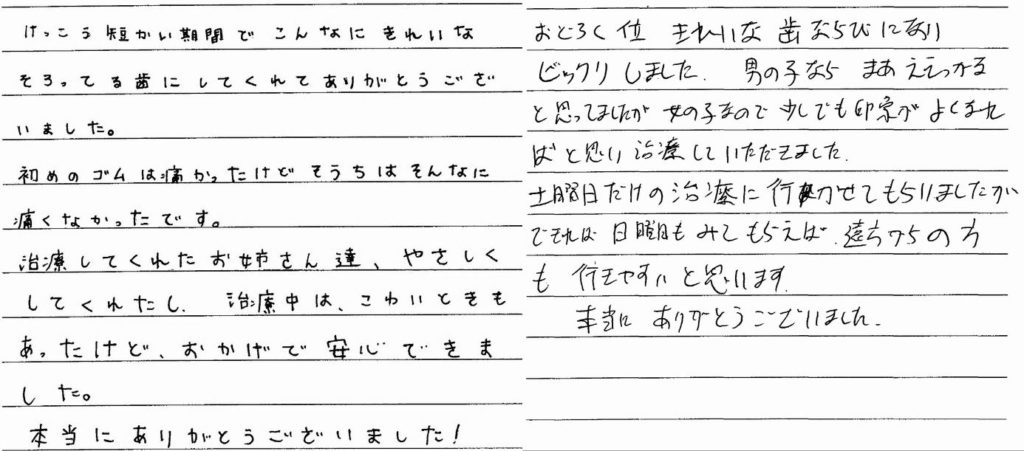 けっこう短かい期間でこんなにきれいな
そろってる歯にしてくれてありがとうござ
いました。
初めのゴムは痛かったけどそうちはそんなに
痛くなかったです。
治療してくれたお姉さん達、やさしく
してくれたし、治療中は、こわいときも
あったけど、おかげで安心できま
した。
本当にありがとうございました!
おどろく位 きれいな歯ならびになり
ビックリしました。男の子なら まあええっかな
と思ってましたが 女の子なので 少しでも印象が よくなれ
ばと思い 治療していただきました。
土曜日だけの治療に行かせてもらいましたが
できれば 日曜日もみてもらえば、遠方からの方
も 行きやすいと思います。
本当に ありがとうございました。